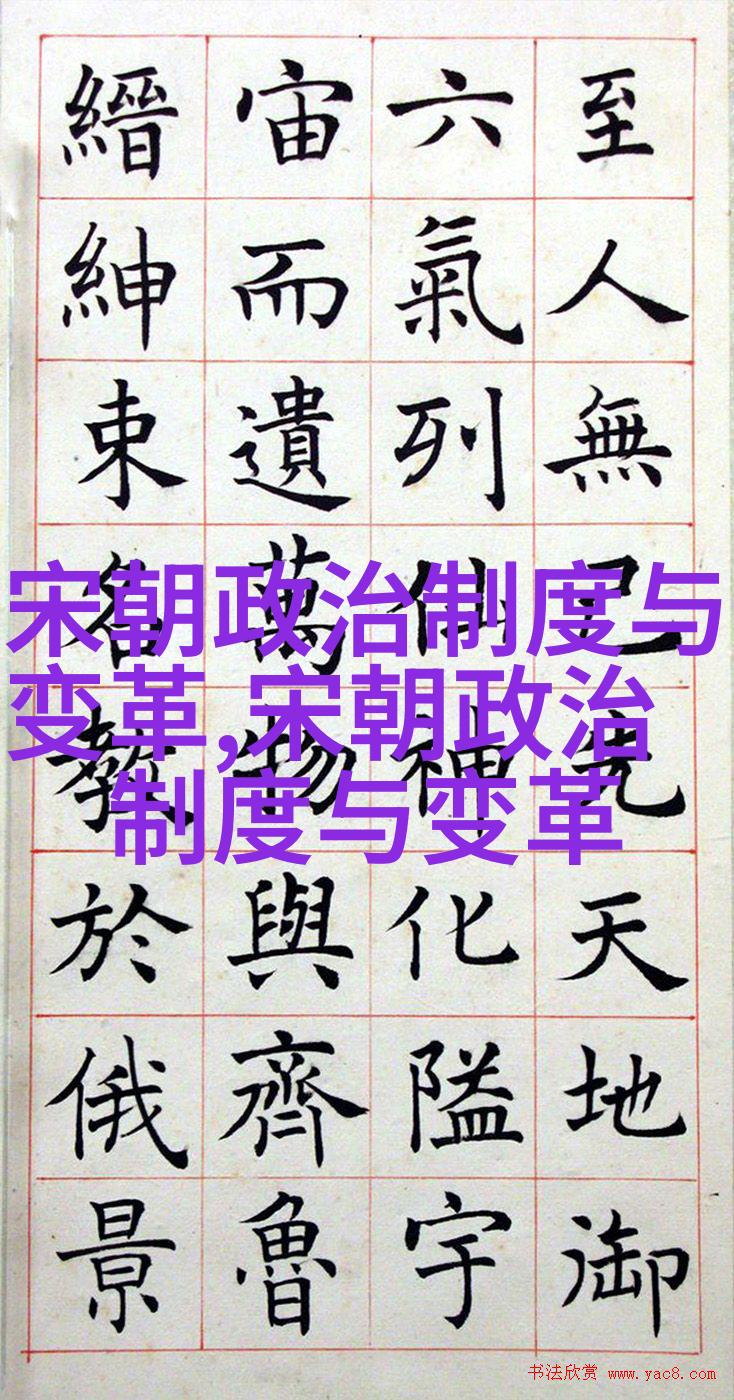 至人無己先天地御
六氣列仙神化隘宇
宙而遺萬物與齊魯
縉紳束名教於俄景
宋朝政治制度与
变革,宋朝政治
制度与变革
书法欣赏 www.yac8.com